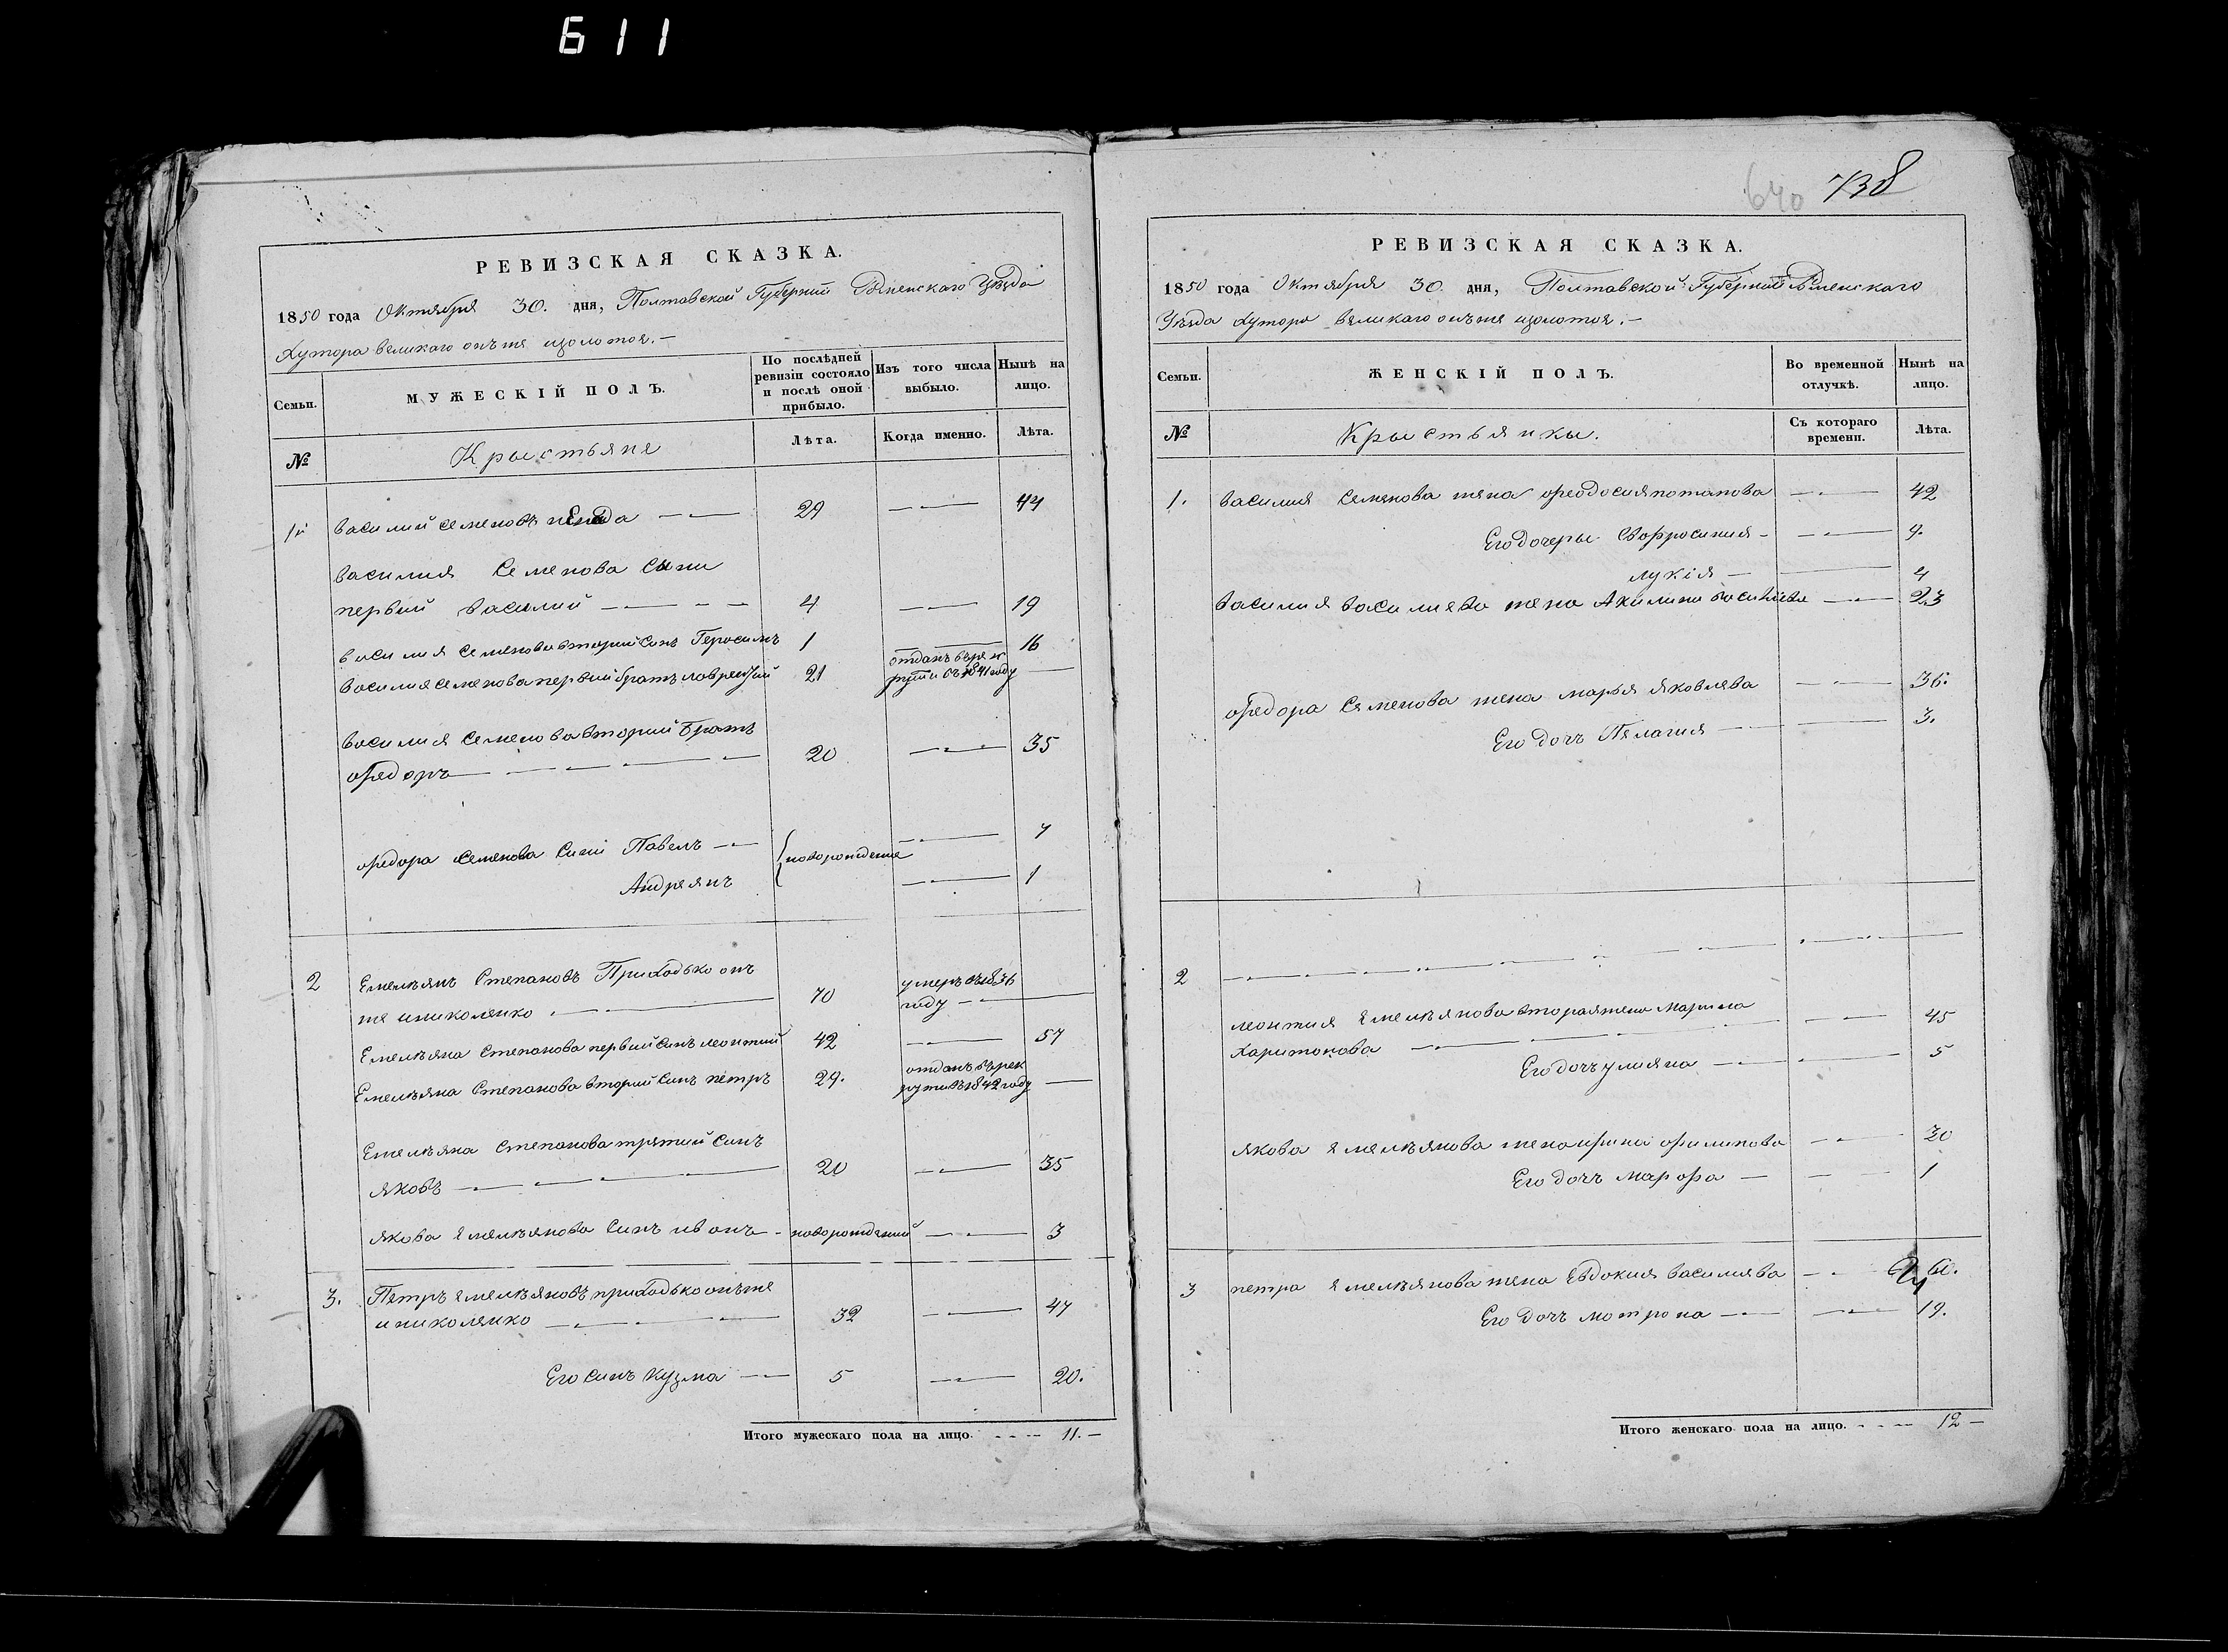 611
РЕВИЗСКАЯ СКАЗКА.
1850 года Октября 30. дня, Полтавской Губернии Роменскаго Уѣзда
Хутора великаго онъ же
Семьи.
МУЖЕСКІЙ ПОЛЪ.
По послѣдней ревизіи состояло и послѣ оной прибыло.
Изъ того числа выбыло.
Нынѣ на лицо.
№
Крыстьяне
Лѣта.
Когда именно.
Лѣта.
1й Василий Семеновъ 29 44
Василия Семенова Сыни
первий Василий 4 19
Василия Семенова вторий Синъ Геросимъ 1 16
Василия Семенова первий братъ лаврентий 21 отданъ въ рекрути въ 1841 году
Василия Семенова вторий Братъ
ѳедоръ 20 35
ѳедора Семенова Сини Павелъ новорожденіе 7
Андреянъ 1
2 Емельянъ Степановъ Приходько онъ
же иниколенко 70 умеръ въ 1836 году
Емельяна Степанова первий Синъ леонтий 42 57
Емельяна Степанова вторий Синъ петръ 29. отданъ въ рекрути въ 1842 году
Емельяна Степанова третий Синъ
яковъ 20 35
якова емельянова Синъ иванъ новорождений 3
3. Петръ емельяновъ приходько онъ же
иниколенко 32 47
Его Синъ Кузма 5 20.
Итого мужескаго пола на лицо. 11.
640 738
РЕВИЗСКАЯ СКАЗКА.
1850 года Октября 30 дня, Полтавской Губернии Роменскаго
Уѣзда Хутора великаго онъ же
Семьи.
ЖЕНСКІЙ ПОЛЪ.
Во временной отлучкѣ.
Нынѣ на лицо.
№
Крыстьянкы.
Съ котораго времени.
Лѣта.
1. Василия Семенова жена ѳеодосия потапова 42
Его дочеры Евфросиния 9.
лукія 4
Василия Василиева жена Акилина 23
ѳедора Семенова жена марья яковлева 36.
Его дочъ Пелагия 3.
2
леонтия емельянова вторая жена Марина
Харитонова 45
Его дочъ улияна 5
якова емельянова жена ирина филипова 30
Его дочъ марфа 1
3 петра емельянова жена Евдокия Василева
Его дочъ мотрона 19.
Итого женскаго пола на лицо. 12